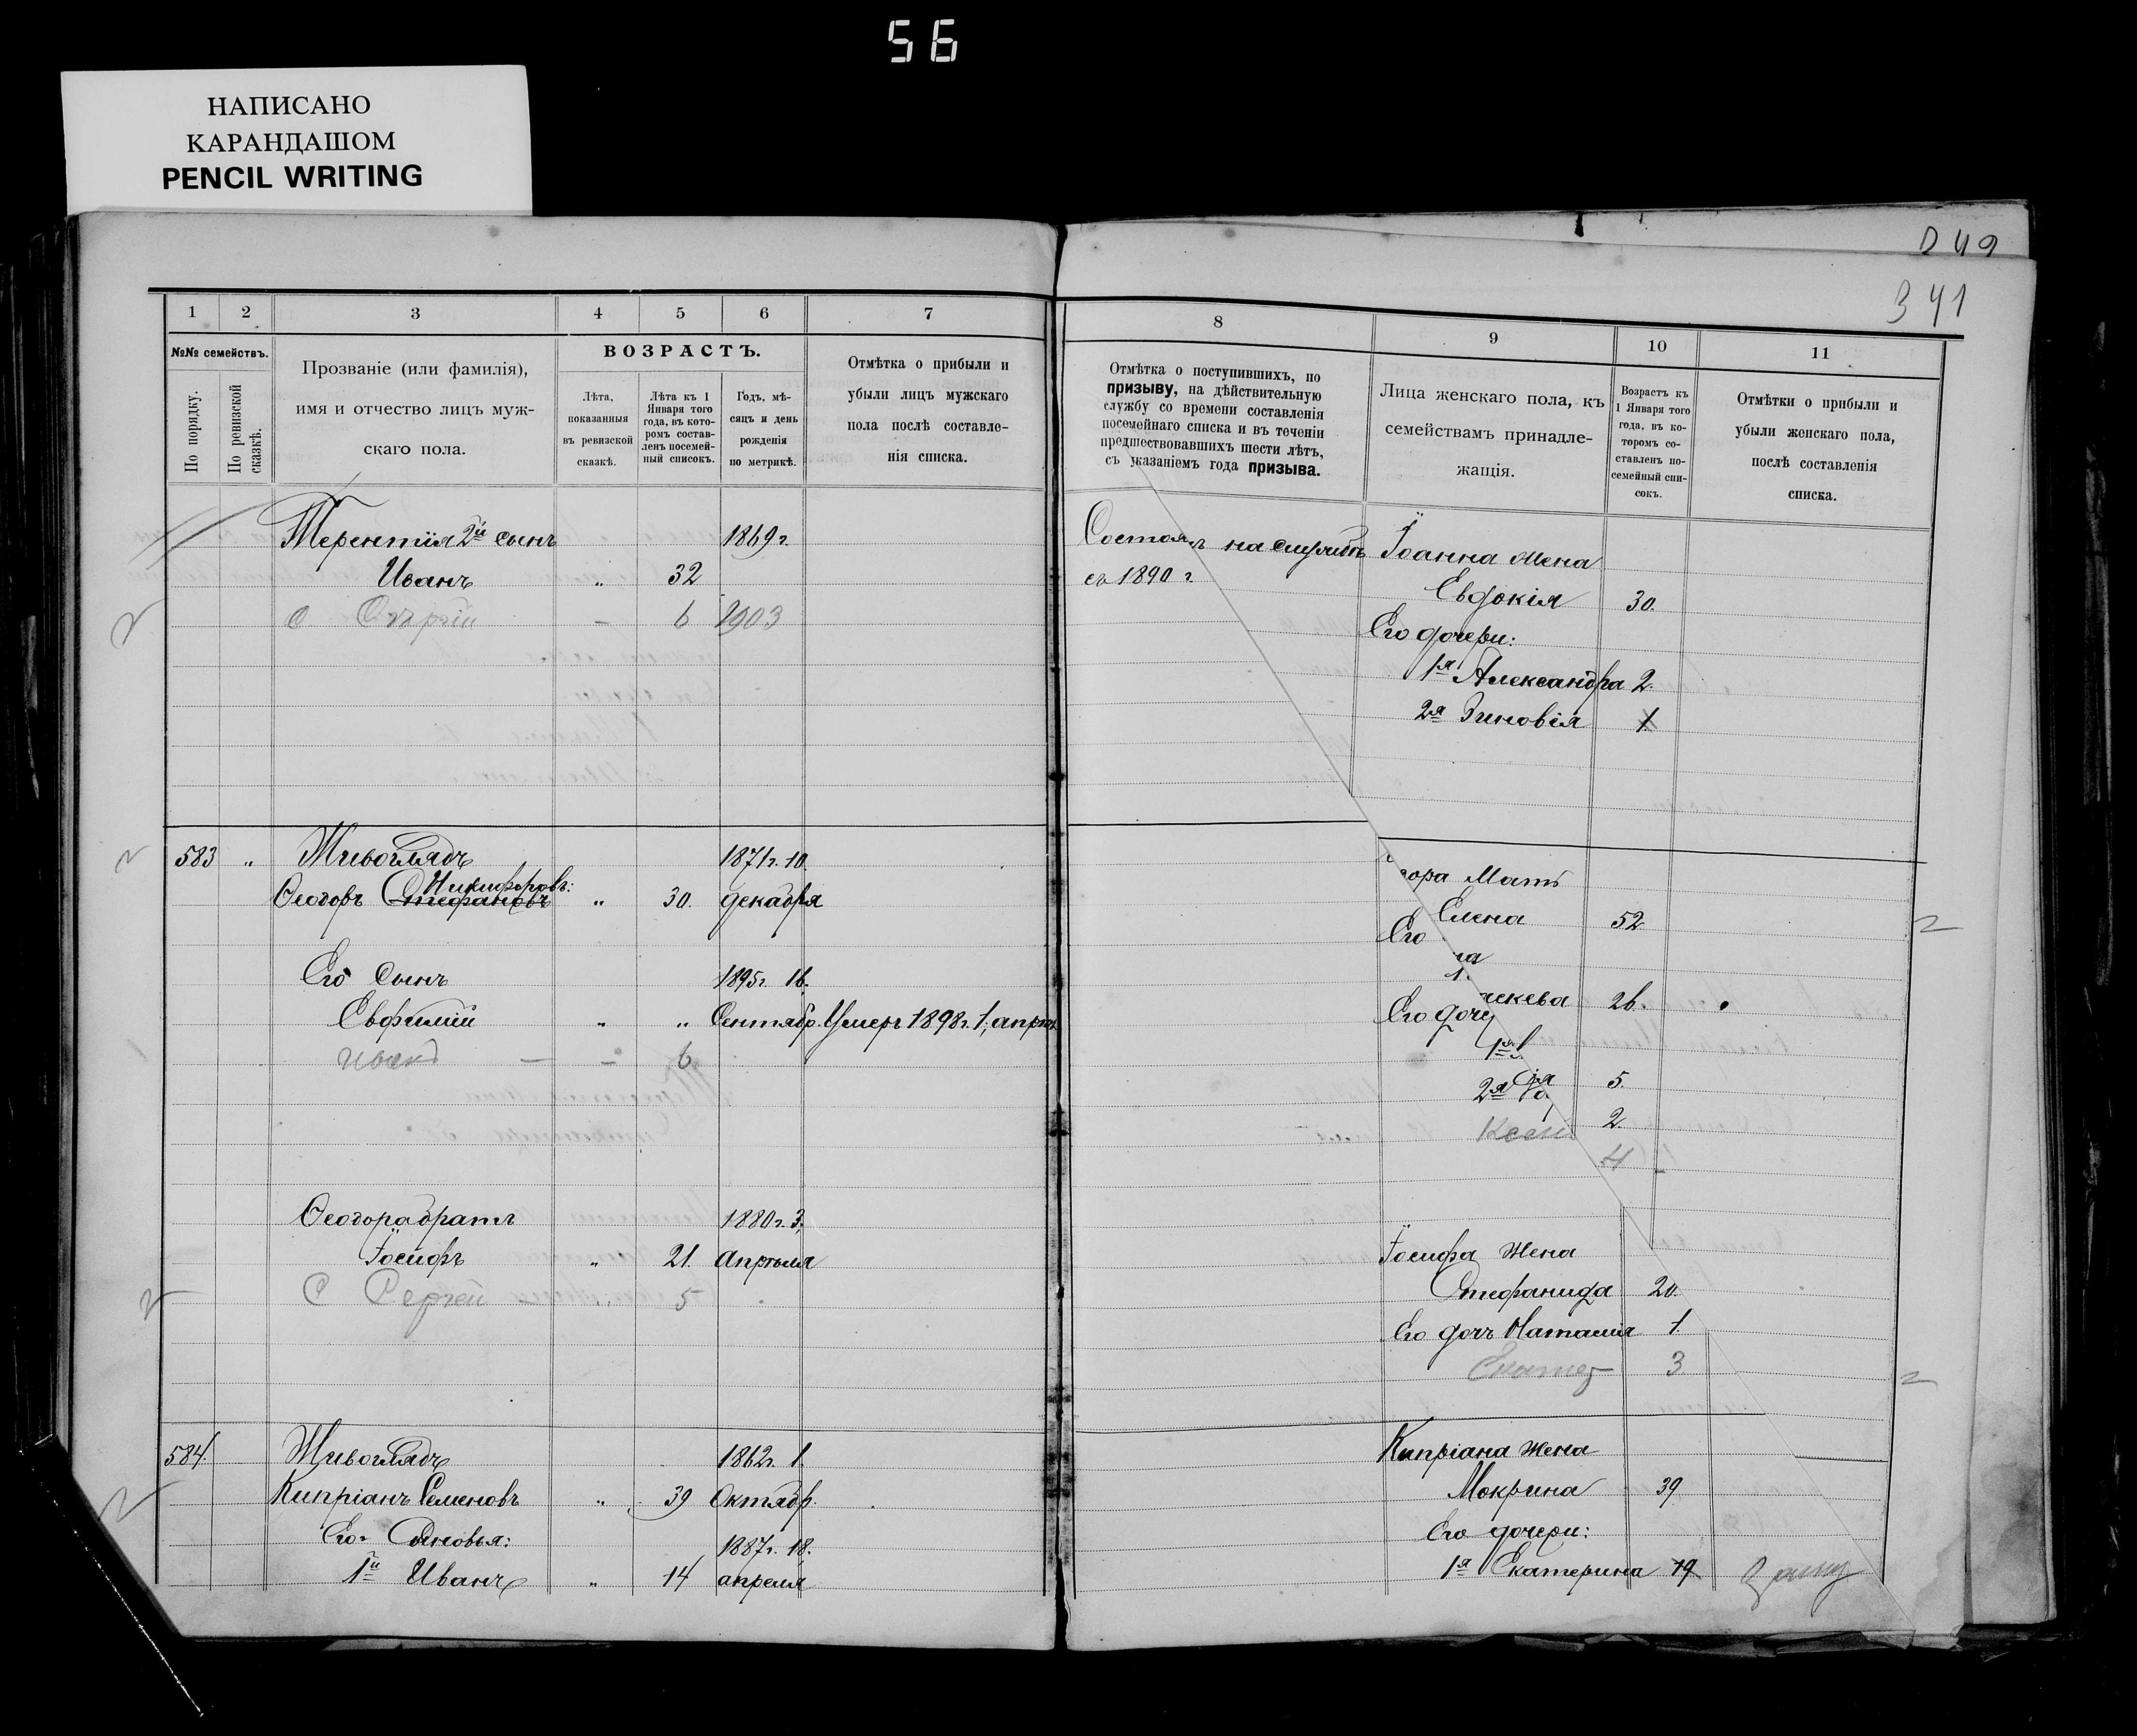 56
НАПИСАНО
КАРАНДАШОМ
PENCIL WRITING
341
1 2 3 4 5 6 7
№№ семействъ.
По порядку.
По ревизской сказкѣ.
Прозваніе (или фамилія),
имя и отчество лицъ муж-
скаго пола.
ВОЗРАСТЪ.
Лѣта,
показанныя
въ ревизской
сказкѣ.
Лѣта къ 1
Января того
года, въ кото-
ромъ состав-
ленъ посемей-
ный списокъ.
Годъ, мѣ-
сяцъ и день
рожденія
по метрикѣ.
Отмѣтка о прибыли и
убыли лицъ мужскаго
пола послѣ составле-
нія списка.
Терентія 2й сынъ 1869 г.
Иванъ " 32
С. - 6 1903
583 " Живоглядъ 1871 г. 10.
Никифоровъ:
Ѳеодоръ Стефановъ " 30. декабря
Его сынъ 1895 г. 16.
Евфимій " " Сентябр. Умеръ 1898 г. 1, апрѣл
- - 6
Ѳеодора братъ 1880 г. 3.
Іосифъ " 21. апрѣля
С Сергей - " 5
584. Живоглядъ 1862 г. 1.
Кипріанъ Семеновъ " 39 Октябр.
Его Сыновья: 1887 г. 18.
1й Иванъ " 14 апреля
8 9 10 11
Отмѣтка о поступившихъ, по
призыву, на дѣйствительную
службу со времени составленія
посемейнаго списка и въ теченіи
предшествовавшихъ шести лѣтъ,
съ указаніемъ года призыва.
Лица женскаго пола, къ
семействамъ принадле-
жащія.
Возрастъ къ
1 Января того
года, въ ко-
торомъ со-
ставленъ по-
семейный спи-
сокъ.
Отмѣтки о прибыли и
убыли женскаго пола,
послѣ составленія
списка.
Состоялъ на службѣ Іоанна жена
съ 1890 г. Евдокія 30.
Его дочери:
1я Александра 2.
2я Зиновія 1
дора Мать
Елена 52
Его
на
1.
аскева 26.
Его доче
1я
ія 5.
2я
2.
Ксен
4 -
Іосифа жена
Стефанида 20.
Его дочь Наталія 1
Екатер 3
Кипріана жена
Мокрина 39
Его дочери:
1я Екатерина 19 Замуж